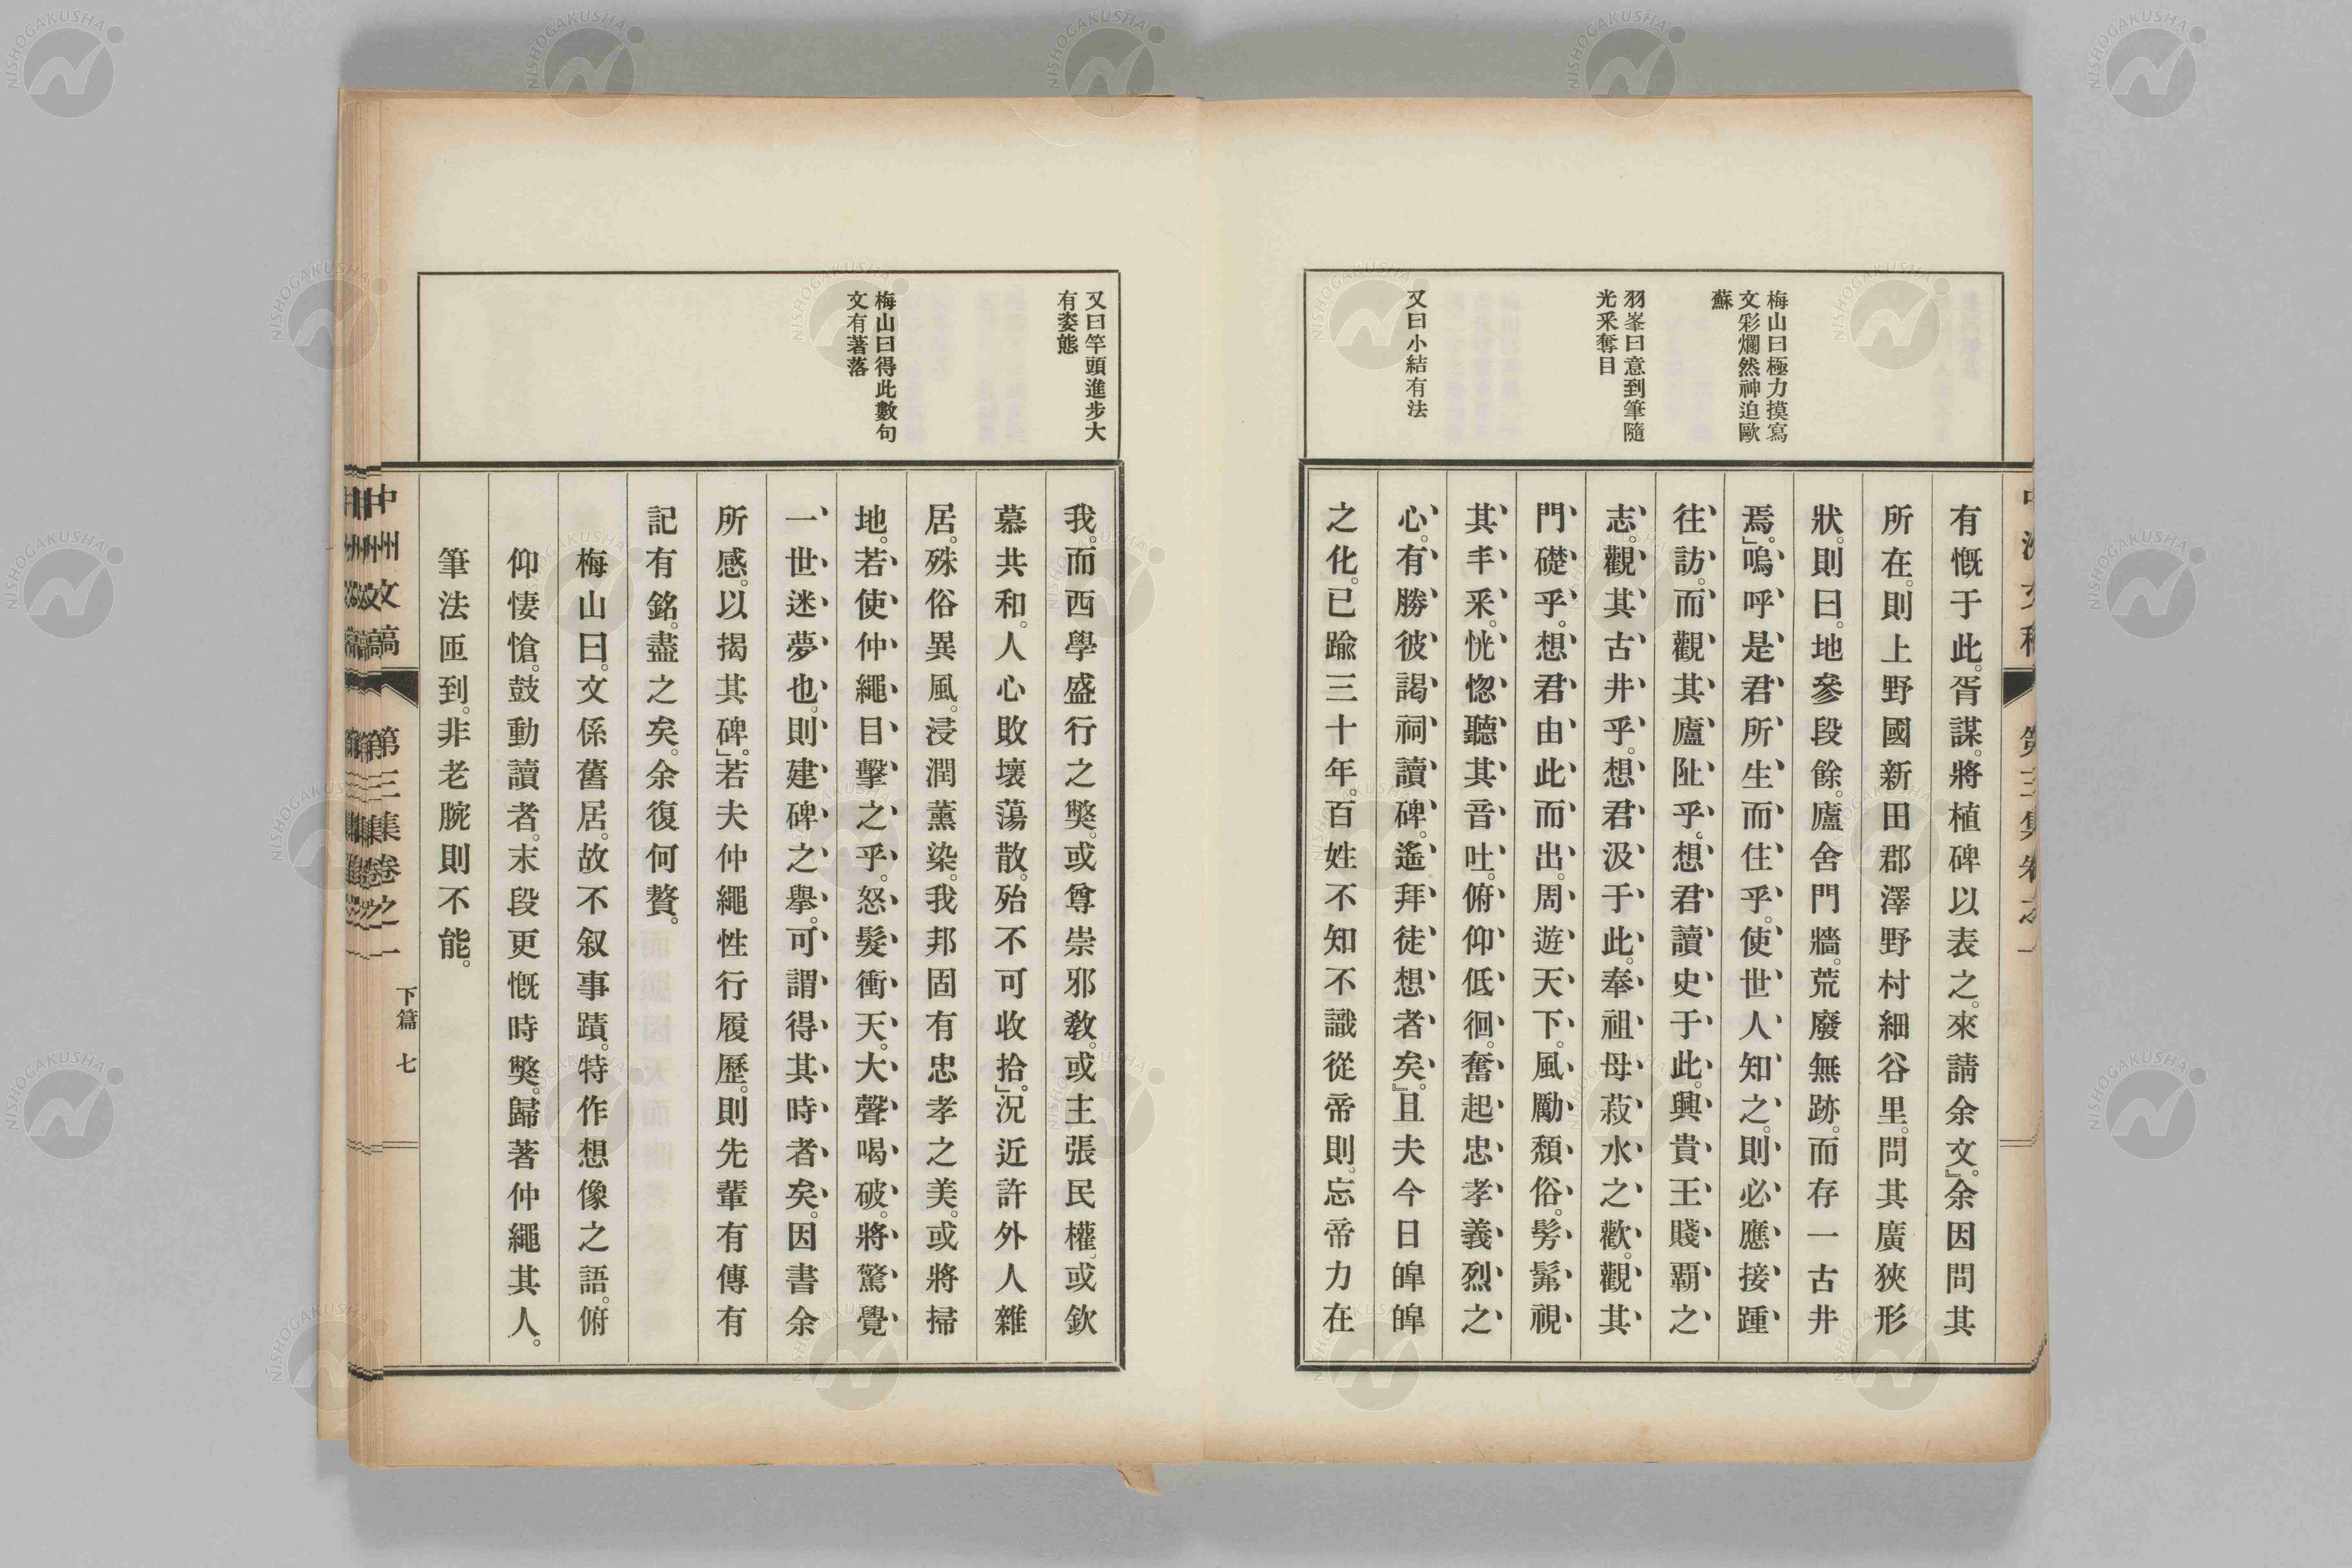 梅山曰極力摸寫
文彩爛然神迫歐
蘇
羽峯曰意到筆隨
光釆奪目
又曰小結有法
有慨于此。胥謀。將植碑以表之。來請余文。』余因問其
所在。則上野國新田郡澤野村細谷里。問其廣狹形
狀。則曰。地參段餘。廬舍門牆。荒廢無跡。而存一古井
焉。」嗚呼是君所生而住乎。使世人知之。則必應接踵
往訪。而觀其廬阯乎。想君讀史于此。興貴王賤覇之
志。觀其古井乎。想君汲于此。奉祖母菽水之歡。觀其
門礎乎。想君由此而出。周遊天下。風勵頽俗。髣髴視
其丰釆。恍惚聽其音吐。俯仰低徊。奮起忠孝義烈之
心。有勝彼謁祠讀碑。遙拜徒想者矣。』且夫今日皞皞
之化。已踰三十年。百姓不知不識從帝則。忘帝力在
又曰竿頭進步大
有姿態
梅山曰得此數句
文有著落
我。而西學盛行之獘。或尊崇邪敎。或主張民權。或欽
慕共和。人心敗壞蕩散。殆不可收拾。』況近許外人雜
居。殊俗異風。浸潤薰染。我邦固有忠孝之美。或將掃
地。若使仲繩目擊之乎。怒髮衝天。大聲喝破。將驚覺
一世迷夢也。則建碑之擧。可謂得其時者矣。因書余
所感。以揭其碑。』若夫仲繩性行履歷。則先輩有傳有
記有銘。盡之矣。余復何贅。
梅山曰。文係舊居。故不叙事蹟。特作想像之語。俯
仰悽愴。鼓動讀者。末段更慨時獘。歸著仲繩其人。
筆法匝到。非老腕則不能。
中州文稿
第三集卷之一
下篇
七